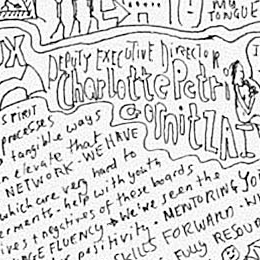 MY
TONGUE
DEPUTY EXECUTIVE DIRECTOR
Charlotte Petri
GORNITZKA
SPIRIT
processes
tangible ways
elevate that
NETWORK - WE HAVE
which are very hard to
- help with youth
+ negatives of these boards
FLUENCY → We've seen the
positivity. MENTORING YO
SKILLS FORWARD - W
FULLY RESOU